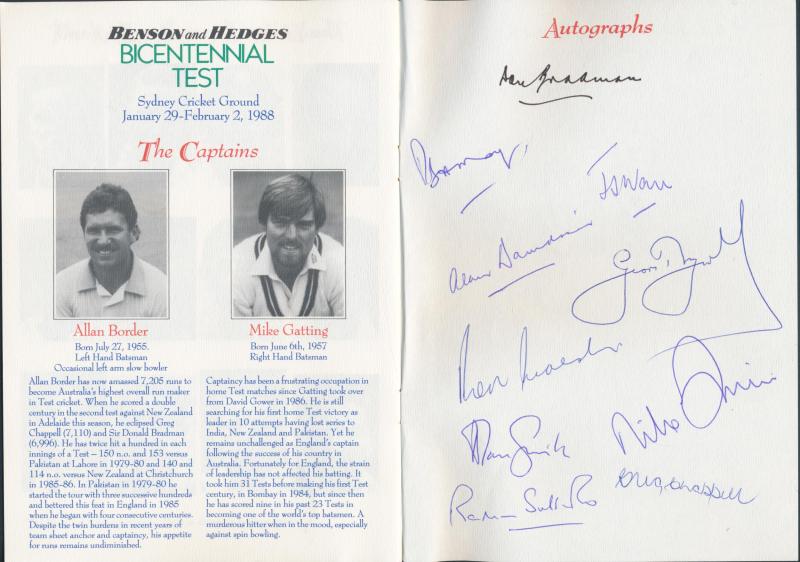 BENSON and HEDGES
BICENTENNIAL
TEST
Sydney Cricket Ground
January 29-February 2, 1988
The Captains
Allan Border
Born July 27, 1955.
Left Hand Batsman
Occasional left arm slow bowler
Allan Border has now amassed 7,205 runs to
become Australia's highest overall run maker
in Test cricket. When he scored a double
century in the second test against New Zealand
in Adelaide this season, he eclipsed Greg
Chappell (7,110) and Sir Donald Bradman
(6,996). He has twice hit a hundred in each
innings of a Test – 150 n.o. and 153 versus
Pakistan at Lahore in 1979-80 and 140 and
114 n.o. versus New Zealand at Christchurch
in 1985-86. In Pakistan in 1979-80 he
started the tour with three successive hundreds
and bettered this feat in England in 1985
when he began with four consecutive centuries.
Despite the twin burdens in recent years of
team sheet anchor and captaincy, his appetite
for runs remains undiminished.
Mike Gatting
Born June 6th, 1957
Right Hand Batsman
Captaincy has been a frustrating occupation in
home Test matches since Gatting took over
from David Gower in 1986. He is still
searching for his first home Test victory as
leader in 10 attempts having lost series to
India, New Zealand and Pakistan. Yet he
remains unchallenged as England's captain
following the success of his country in
Australia. Fortunately for England, the strain
of leadership has not affected his batting. It
took him 31 Tests before making his first Test
century, in Bombay in 1984, but since then
he has scored nine in his past 23 Tests in
becoming one of the world's top batsmen. A
murderous hitter when in the mood, especially
against spin bowling.
Autographs
Don Bradman
Alan Davidson
Alan Smith
Raman Subba Row